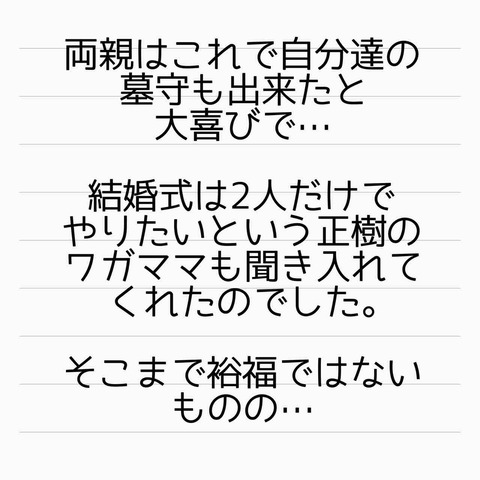 両親はこれで自分達の
墓守も出来たと
大喜びで…
結婚式は2人だけで
やりたいという正樹の
ワガママも聞き入れて
くれたのでした。
そこまで裕福ではない
ものの…